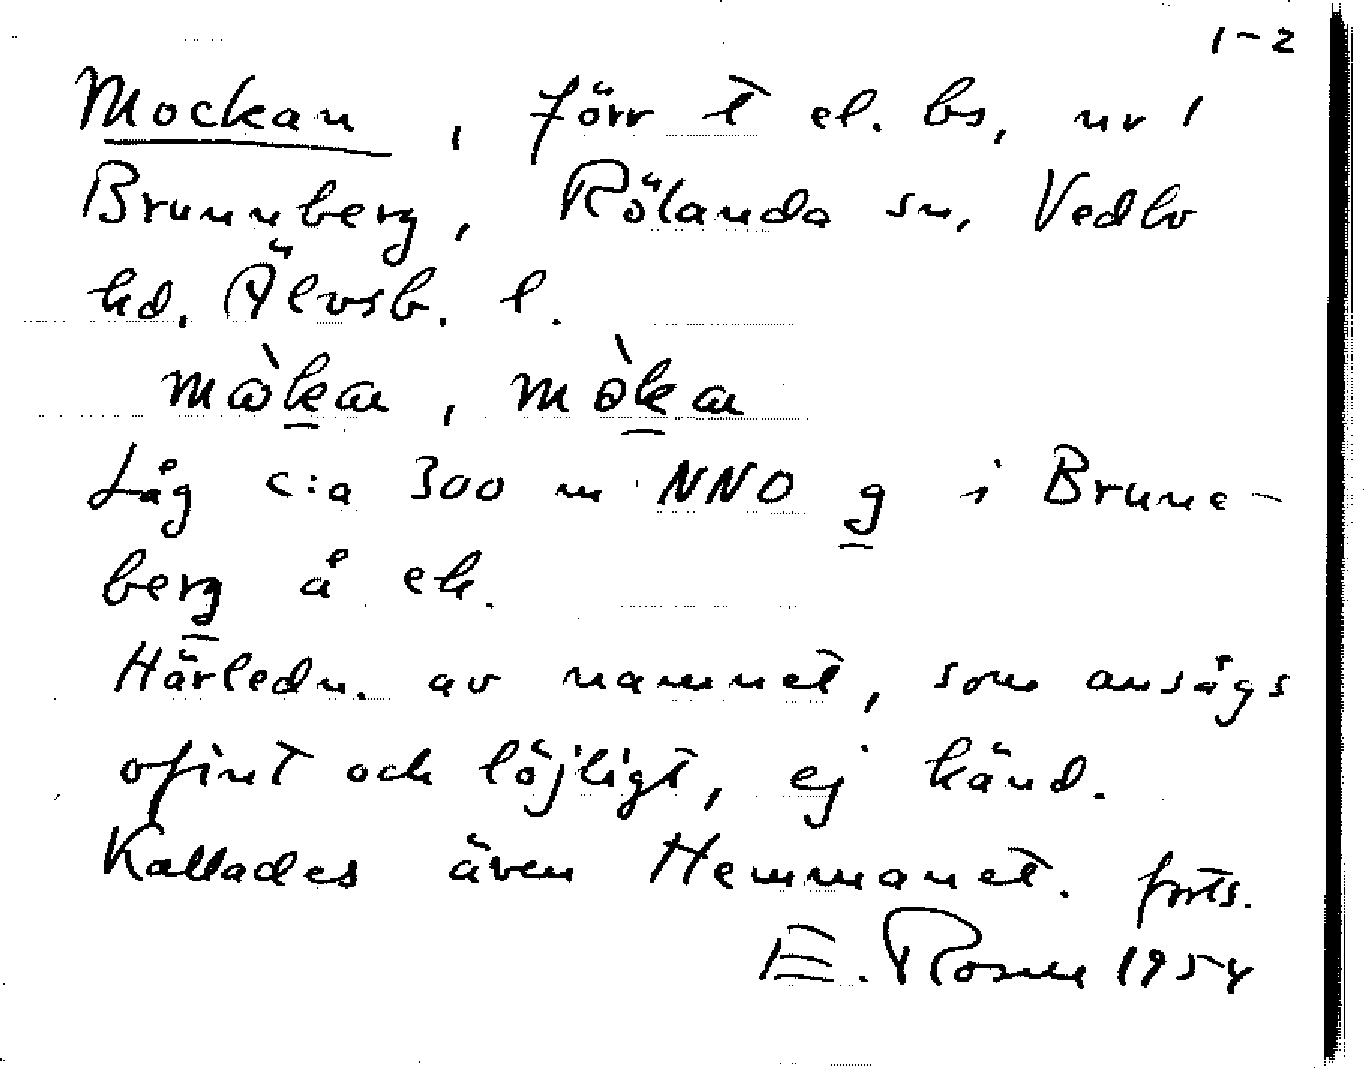 1-2
Mockan, förr t el. bs, nr 1
Brunnberg, Rölanda sn, Vedbo
hd. Älvsb. l.
Låg c:a 300 m NNO g i Brunne-
berg å ek.
Härledn. av namnet, som ansågs
ofint och löjligt, ej känd.
Kallades även Hemmanet. forts.
E. Rosell 1954